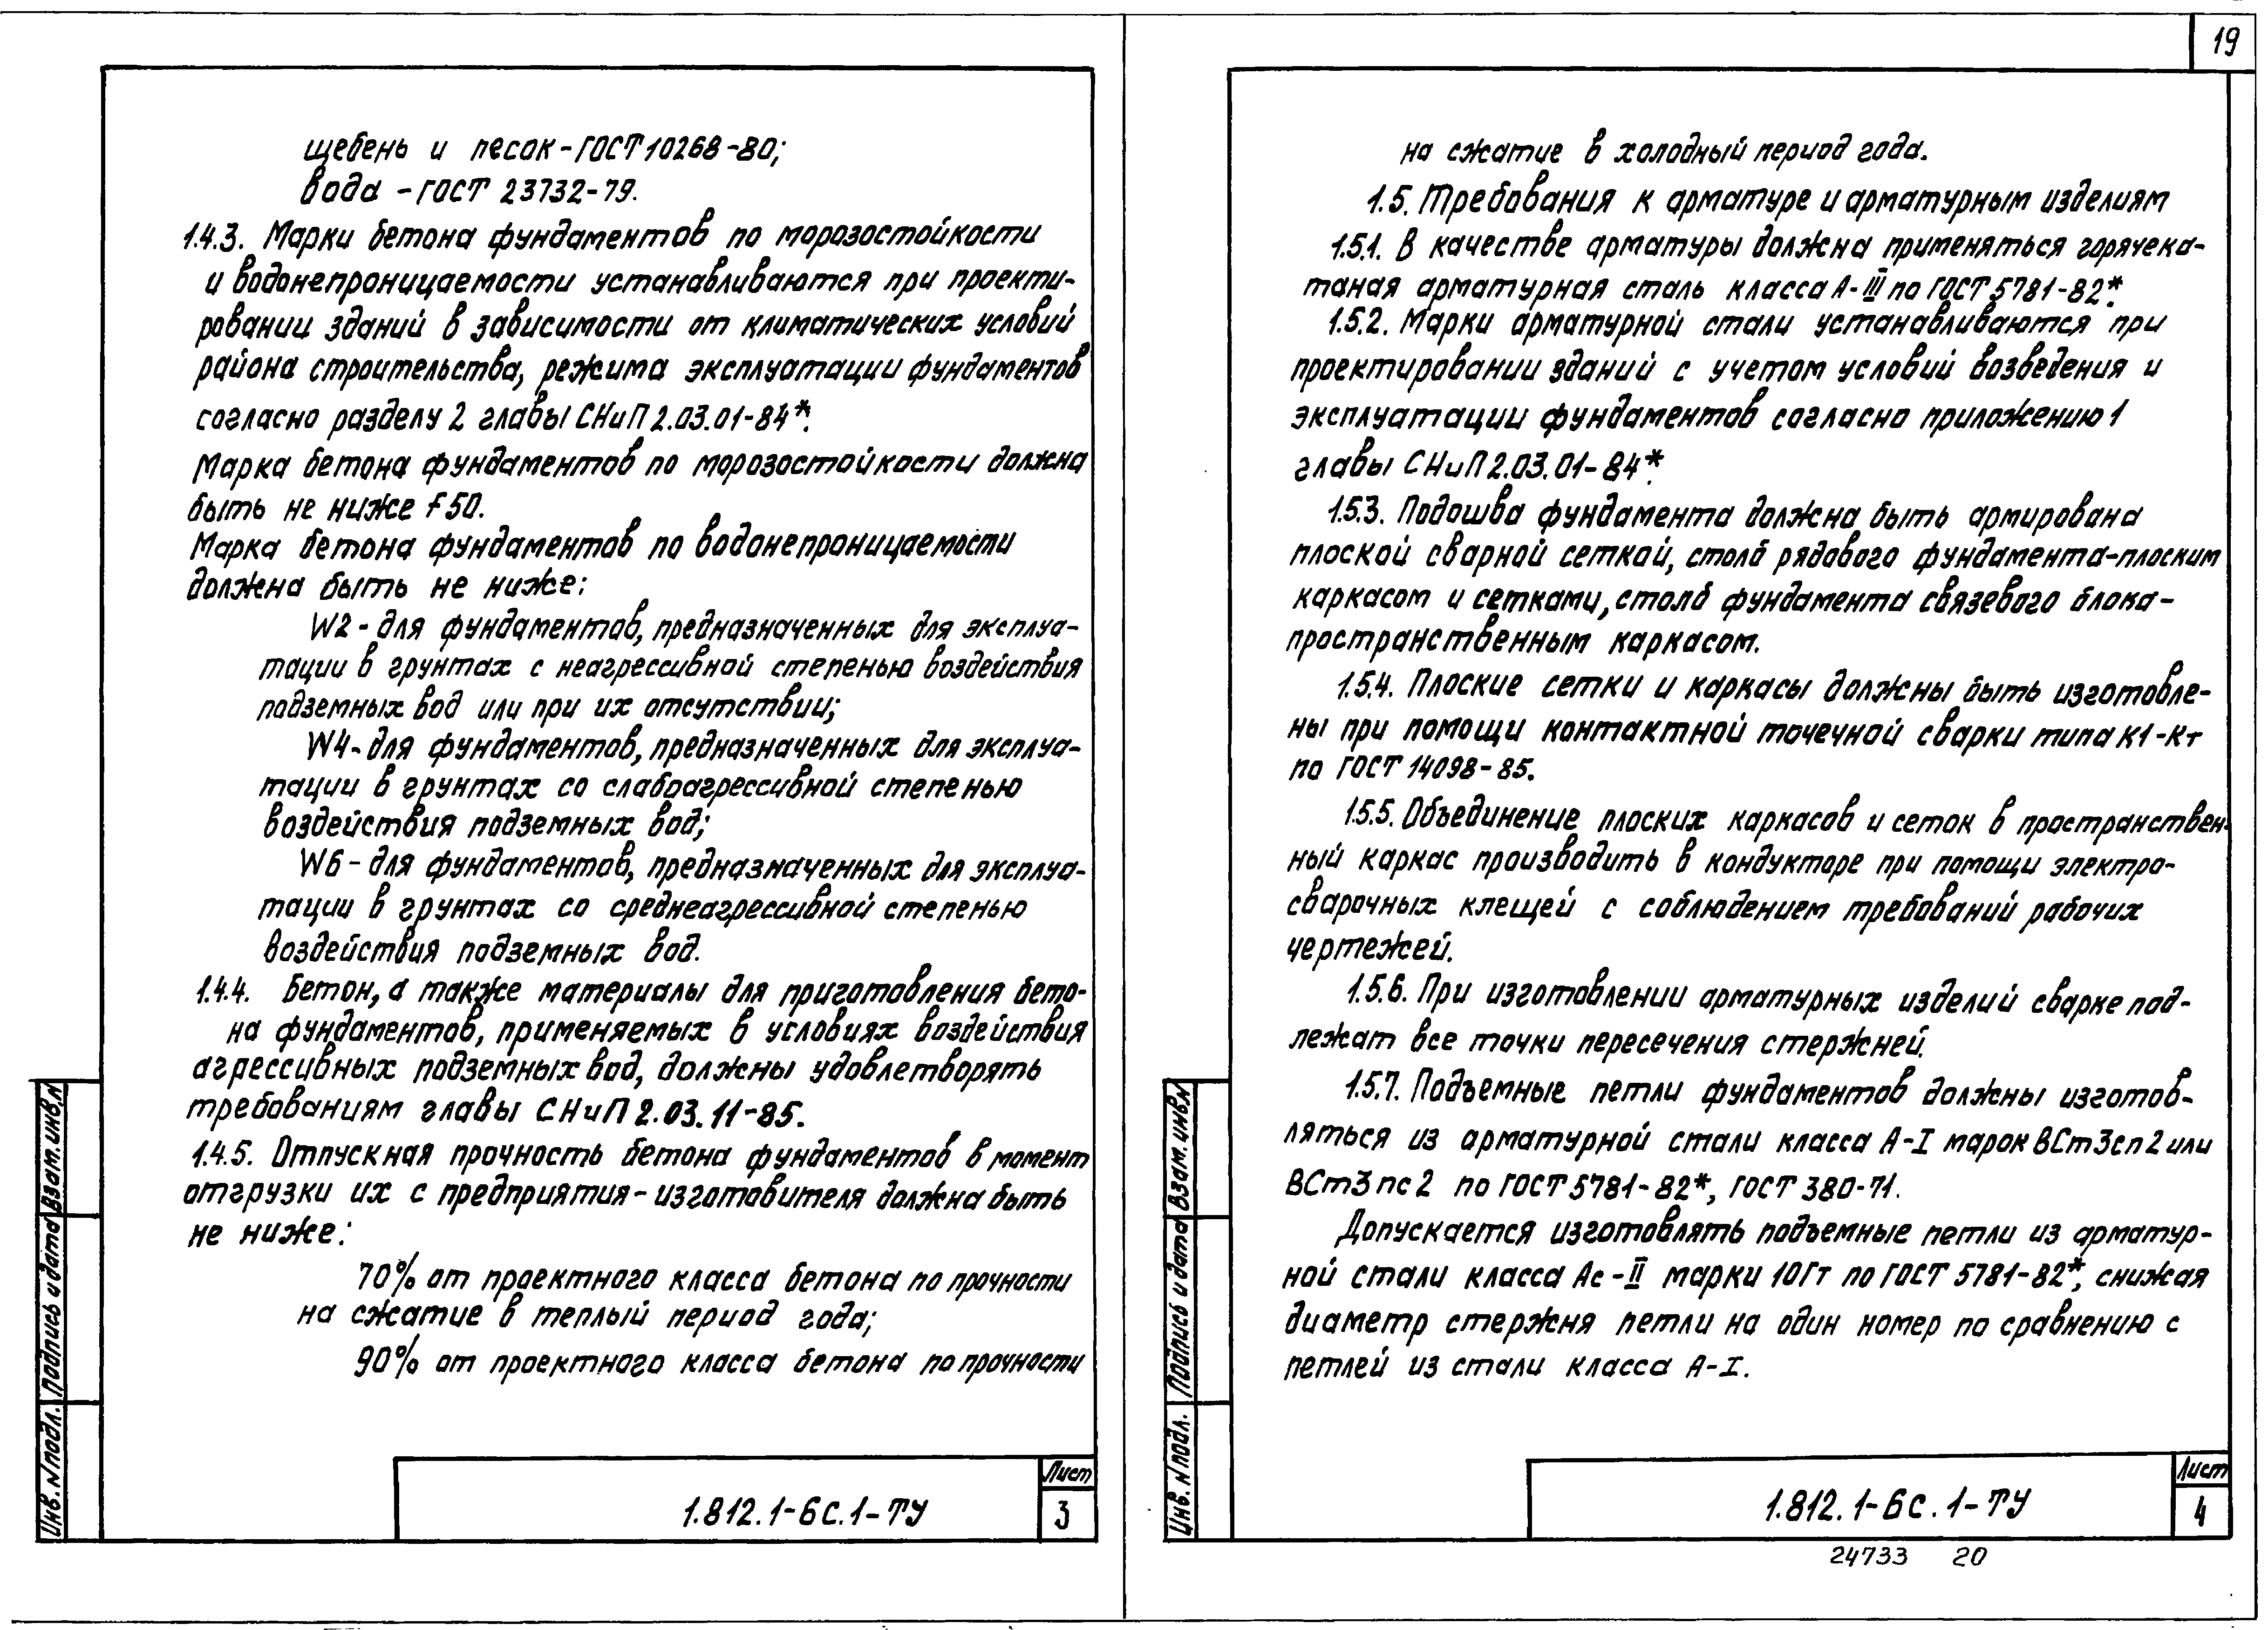 щебень и песок - ГОСТ 10268-80;
вода - ГОСТ 23732-79.
1.4.3. Марки бетона фундаментов по морозостойкости
и водонепроницаемости устанавливаются при проекти-
ровании зданий в зависимости от климатических условий
района строительства, режима эксплуатации фундаментов
согласно разделу 2 главы СНиП 2.03.01-84*.
Марка бетона фундаментов по морозостойкости должна
быть не ниже F50.
Марка бетона фундаментов по водонепроницаемости
должна быть не ниже:
W2 - для фундаментов, предназначенных для эксплуа-
тации в грунтах с неагрессивной степенью воздействия
подземных вод или при их отсутствии;
W4 - для фундаментов, предназначенных для эксплуа-
тации в грунтах со слабоагрессивной степенью
воздействия подземных вод;
W6 - для фундаментов, предназначенных для эксплуа-
тации в грунтах со среднеагрессивной степенью
воздействия подземных вод.
1.4.4. Бетон, а также материалы для приготовления бето-
на фундаментов, применяемых в условиях воздействия
агрессивных подземных вод, должны удовлетворять
требованиям главы СНиП 2.03.11-85.
1.4.5. Отпускная прочность бетона фундаментов в момент
отгрузки их с предприятия-изготовителя должна быть
не ниже:
70% от проектного класса бетона по прочности
на сжатие в теплый период года;
90% от проектного класса бетона по прочности
Инв. N подл. Подпись и дата Взам. инв. N
1.812.1-6с.1-ТУ
Лист
3
19
на сжатие в холодный период года.
1.5. Требования к арматуре и арматурным изделиям
1.5.1. В качестве арматуры должна применяться горячека-
таная арматурная сталь класса А-III по ГОСТ 5781-82*.
1.5.2. Марки арматурной стали устанавливаются при
проектировании зданий с учетом условий возведения и
эксплуатации фундаментов согласно приложению 1
главы СНиП 2.03.01-84*.
1.5.3. Подошва фундамента должна быть армирована
плоской сварной сеткой, столб рядового фундамента-плоским
каркасом и сетками, столб фундамента связевого блока-
пространственным каркасом.
1.5.4. Плоские сетки и каркасы должны быть изготовле-
ны при помощи контактной точечной сварки типа К1-Кт
по ГОСТ 14098-85.
1.5.5. Объединение плоских каркасов и сеток в пространствен-
ный каркас производить в кондукторе при помощи электро-
сварочных клещей с соблюдением требований рабочих
чертежей.
1.5.6. При изготовлении арматурных изделий сварке под-
лежат все точки пересечения стержней.
1.5.7. Подъемные петли фундаментов должны изготов-
ляться из арматурной стали класса А-I марок ВСт3сп2 или
ВСт3пс2 по ГОСТ 5781-82*, ГОСТ 380-71.
Допускается изготовлять подъемные петли из арматур-
ной стали класса Ас-II марки 10ГТ по ГОСТ 5781-82*, снижая
диаметр стержня петли на один номер по сравнению с
петлей из стали класса А-I.
Инв. N подл. Подпись и дата Взам. инв. N
1.812.1-6с.1-ТУ
Лист
4
24733 20